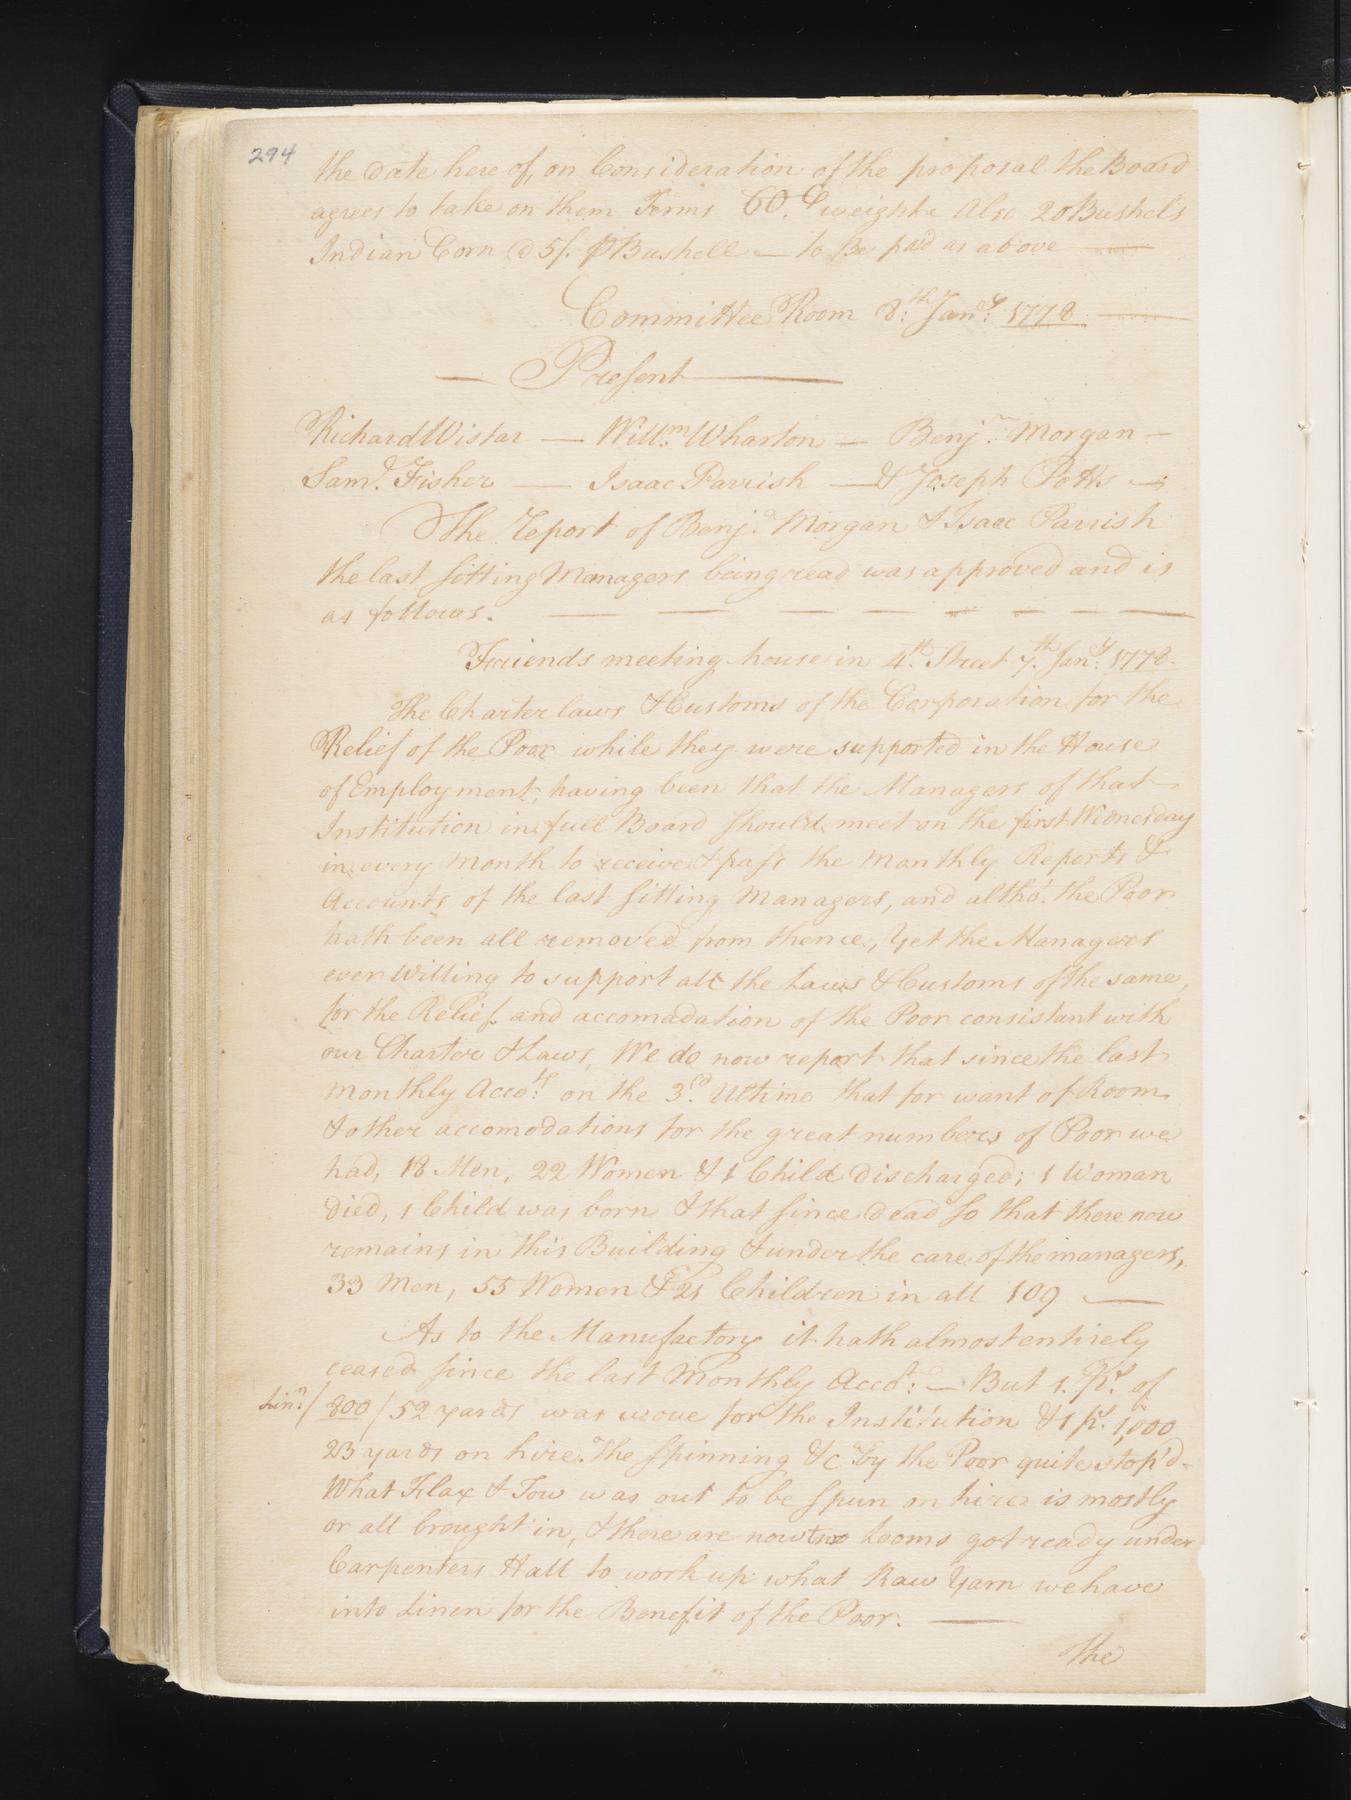 294
the date here of, on Consideration of the proposal the Board
agrees to take on them Terms 60. Ct weight. Also 20 Bushels
Indian Corn @ 5/. ⅌ Bushell — to Be paid as above —
Committee Room 8th: Jany: 1778
— Present —
Richard Wistar — Willm. Wharton — Benjn. Morgan —
Saml. Fisher — Isaac Parrish — & Joseph Potts —
The Report of Benjn. Morgan & Isaac Parrish
the last sitting Managers being read was approved and is
as follows. — — — — — — — —
Friends meeting house in 4th. Street 7th. Jany: 1778.
The Charter laws & Customs of the Corporation for the
Relief of the Poor while they were supported in the House
of Employment, having been that the Managers of that
Institution in full Board should meet on the first Wednesday
in every Month to receive & pass the Monthly Reports &
Accounts of the last sitting Managers, and altho'. the Poor
hath been all removed from thence, Yet the Managers
ever Willing to support all the Laws & Customs of the same,
for the Relief and accomadation of the Poor consistant with
our Charter & Laws, We do now report that since the last
monthly Accots: on the 3rd. Ultimo that for want of Room
& other accomodations for the great numbers of Poor we
had, 18 Men, 22 Women & 1 Child discharged; 1 Woman
died, 1 Child was born & that since dead so that there now
remains in this Building & under the care of the managers,
33 Men, 55 Women & 21 Children in all 109 —
As to the Manufactory it hath almost entirely
ceased since the last Monthly Accot: — But 1. ps. of
Linn: / 800 / 52 yards was wove for the Institution & 1 ps. 1,000
23 yards on hire. The spinning &c by the Poor quite stop'd.
What Flax & Tow was out to be spun on hire is mostly
or all brought in, & there are now two Looms got ready under
Carpenters Hall to work up what Raw Yarn we have
into Linen for the Benefit of the Poor. —
the